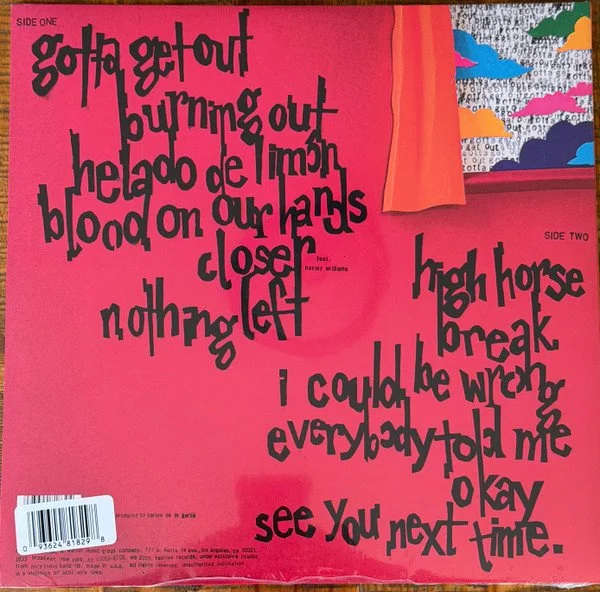 SIDE ONE
gotta get out
burning out
helado de limón
blood on our hands
closer
feat.
hayley williams
nothing left
SIDE TWO
high horse
break
i could be wrong
everybody told me
okay
see you next time.
produced by carlos de la garza
0 93624 81829 8
music group company, 777 s. santa fe ave., los angeles, ca 90021.
made in u.s.a. all rights reserved. unauthorized duplication
is a violation of applicable laws.